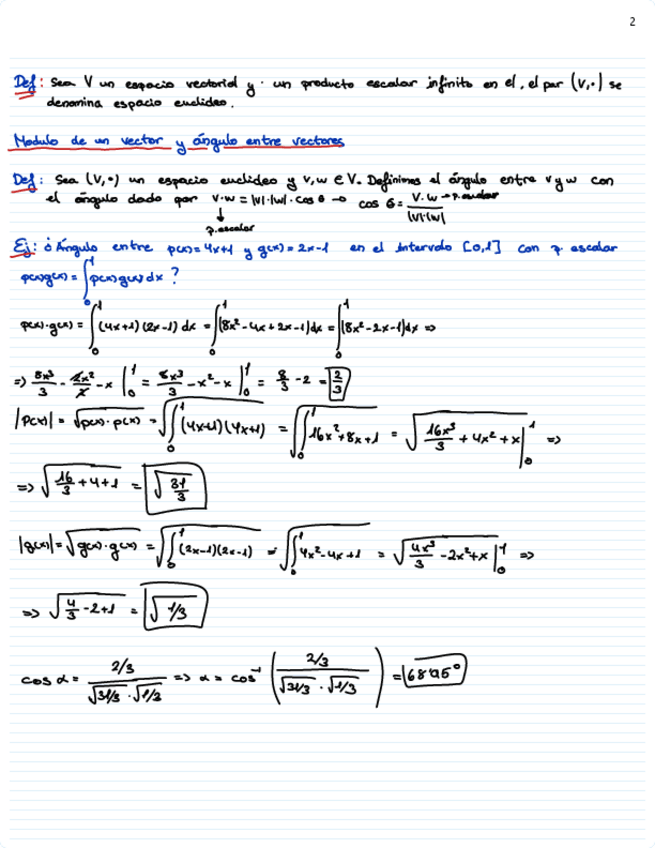 2
Def: Sea V un espacio vectorial y · un producto escalar infinito en el, el par (V,·) se
denomina espacio euclideo.
Modulo de un vector y ángulo entre vectores
Def: Sea (V,·) un espacio euclideo y v,w ∈ V. Definimos el ángulo entre v y w con
el ángulo dado por v·w = |v|·|w|·cos θ → cos θ = v·w / |v|·|w| → p. escalar
↓
p. escalar
Ej: ¿Ángulo entre p(x)=4x+1 y q(x)=2x-1 en el intervalo [0,1] con p. escalar
p(x)q(x) = ∫₀¹ p(x)q(x) dx ?
p(x)·q(x) = ∫₀¹ (4x+1)(2x-1) dx = ∫₀¹ (8x²-4x+2x-1)dx = ∫₀¹ (8x²-2x-1)dx =>
=> 8x³/3 - 2x²/2 - x |₀¹ = 8x³/3 - x² - x |₀¹ = 8/3 - 2 = 2/3
|p(x)| = √(p(x)·p(x)) = √(∫₀¹ (4x+1)(4x+1)) = √(∫₀¹ 16x²+8x+1) = √(16x³/3 + 4x² + x |₀¹) =>
=> √(16/3 + 4 + 1) = √(31/3)
|q(x)| = √(q(x)·q(x)) = √(∫₀¹ (2x-1)(2x-1)) = √(∫₀¹ 4x²-4x+1) = √(4x³/3 - 2x² + x |₀¹) =>
=> √(4/3 - 2 + 1) = √(1/3)
cos α = 2/3 / (√(31/3) · √(1/3)) => α = cos⁻¹ (2/3 / (√(31/3) · √(1/3))) = 68'95°